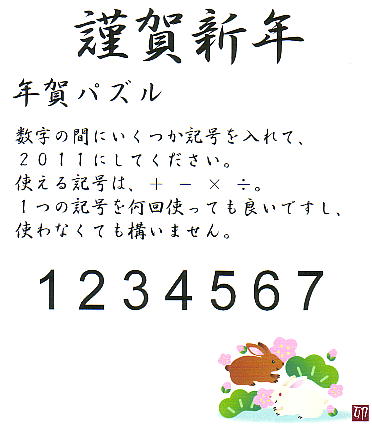 謹賀新年
年賀パズル
数字の間にいくつか記号を入れて、
２０１１にしてください。
使える記号は、＋ － × ÷。
１つの記号を何回使っても良いですし、
使わなくても構いません。
1 2 3 4 5 6 7